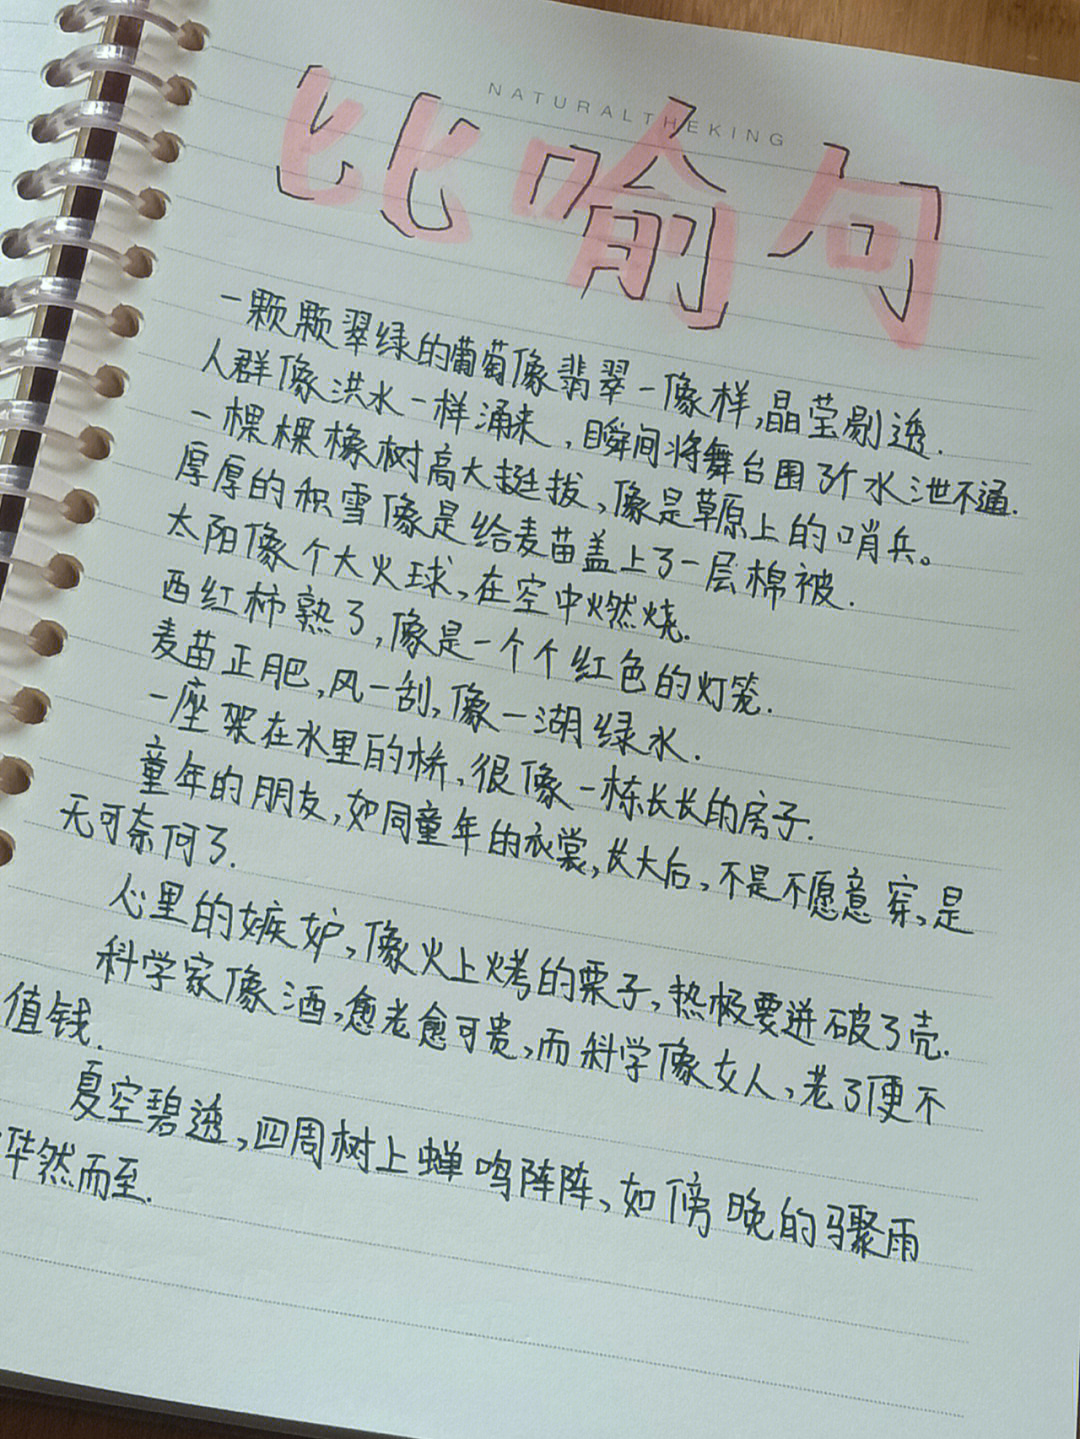 NATURALTHEKING
比喻句
一颗颗翠绿的葡萄像翡翠一像样,晶莹剔透.
人群像洪水一样涌来,瞬间将舞台围了个水泄不通.
一棵棵橡树高大挺拔,像是草原上的哨兵。
厚厚的积雪像是给麦苗盖上了一层棉被.
太阳像个大火球,在空中燃烧.
西红柿熟了,像是一个个红色的灯笼.
麦苗正肥,风一刮,像一湖绿水.
一座架在水里的桥,很像一栋长长的房子.
童年的朋友,如同童年的衣裳,长大后,不是不愿意穿,是
无可奈何了.
心里的嫉妒,像火上烤的栗子,热极要迸破了壳.
科学家像酒,愈老愈可贵,而科学像女人,老了便不
值钱.
夏空碧透,四周树上蝉鸣阵阵,如傍晚的骤雨
哗然而至.